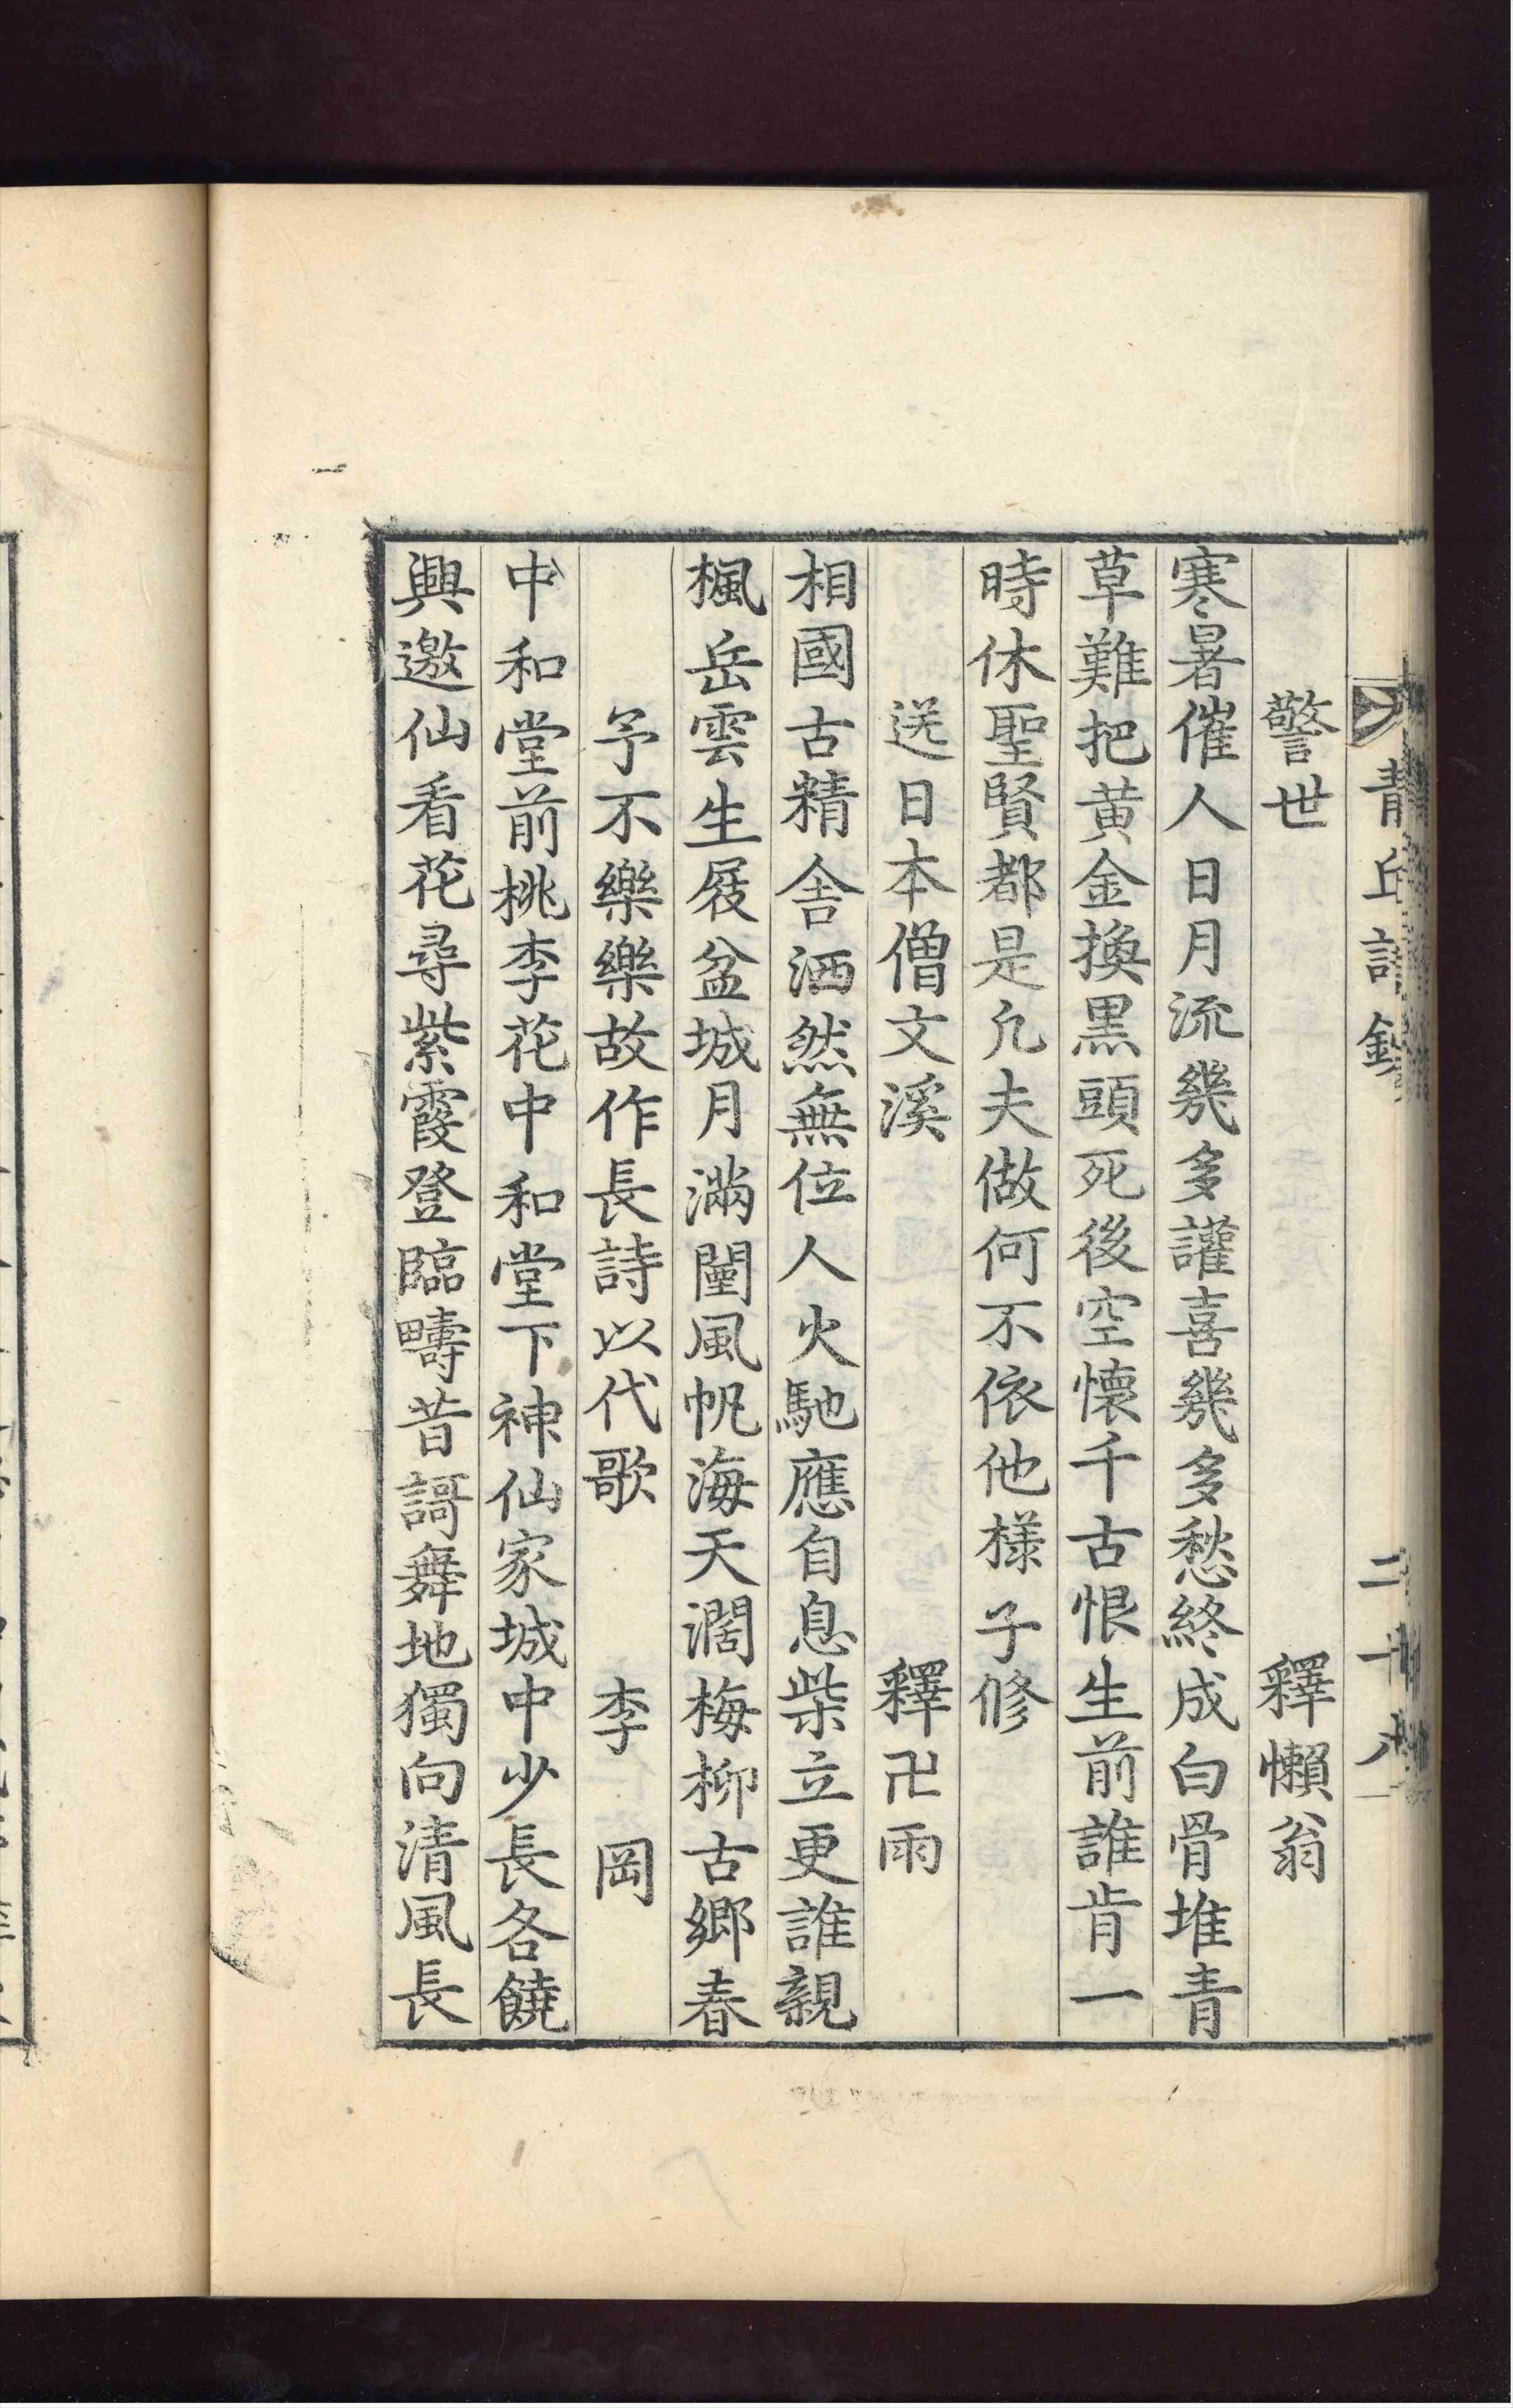 青丘詩鈔 二十八
警世 釋懶翁
寒暑催人日月流幾多讙喜幾多愁終成白骨堆青
草難把黄金換黒頭死後空懷千古恨生前誰肯一
時休聖賢都是凢夫做何不依他樣子修
送日本僧文溪 釋卍雨
相國古精舍洒然無位人火馳應自息柴立更誰親
楓岳雲生屐盆城月滿闉風帆海天濶梅柳古鄉春
予不樂樂故作長詩以代歌 李岡
中和堂前桃李花中和堂下神仙家城中少長各饒
興邀仙看花尋紫霞登臨疇昔謌舞地獨向清風長